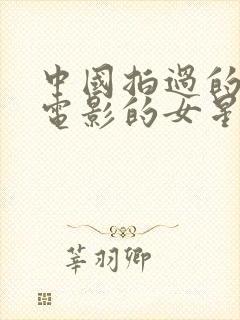 中國拍過的
電影的女星
莘羽卿